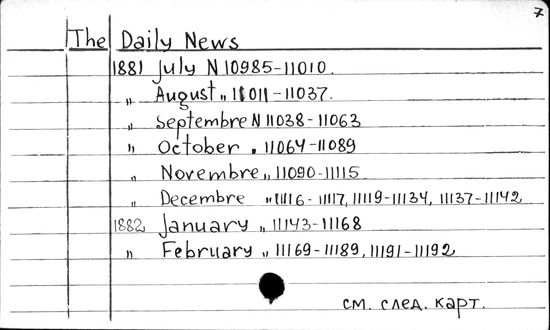 7
The Daily News
1881 July N 10985-11010.
„ August „ 11011-11037.
„ Septembre N 11038-11063
„ October „ 11064-11089
„ Novembre „ 11090-11115
„ Decembre „ 11116-11117, 11119-11134, 11137-11142
1882 January „ 11143-11168
„ February „ 11169-11189, 11191-11192
см. след. карт.